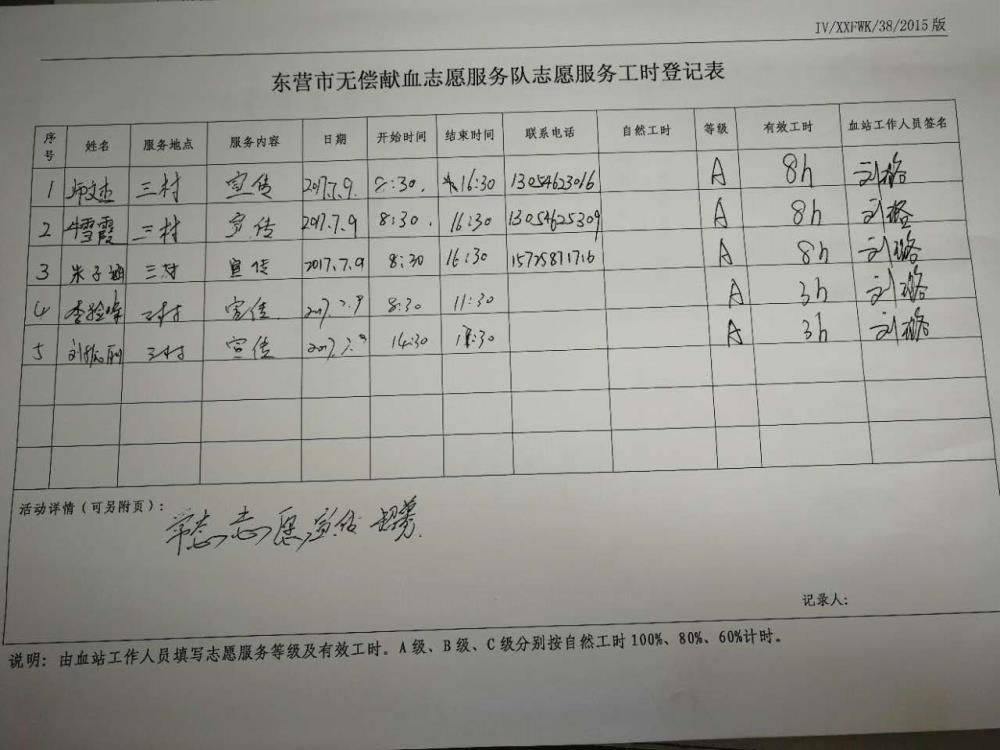 IV/XXFWK/38/2015版
东营市无偿献血志愿服务队志愿服务工时登记表
序号 姓名 服务地点 服务内容 日期 开始时间 结束时间 联系电话 自然工时 等级 有效工时 血站工作人员签名
1 三村 宣传 2017.7.9. 8:30. 16:30 13054623016 A 8h
2 牛雪霞 三村 宣传 2017.7.9 8:30. 16:30 13054625309 A 8h
3 朱子涵 三村 宣传 2017.7.9 8:30 16:30 15725871716 A 8h
4 三村 宣传 2017.7.9 8:30 11:30 A 3h
5 三村 宣传 2017.7.9 14:30 A 3h
活动详情(可另附页):
常态志愿宣传招募.
记录人:
说明: 由血站工作人员填写志愿服务等级及有效工时。A级、B级、C级分别按自然工时100%、80%、60%计时。